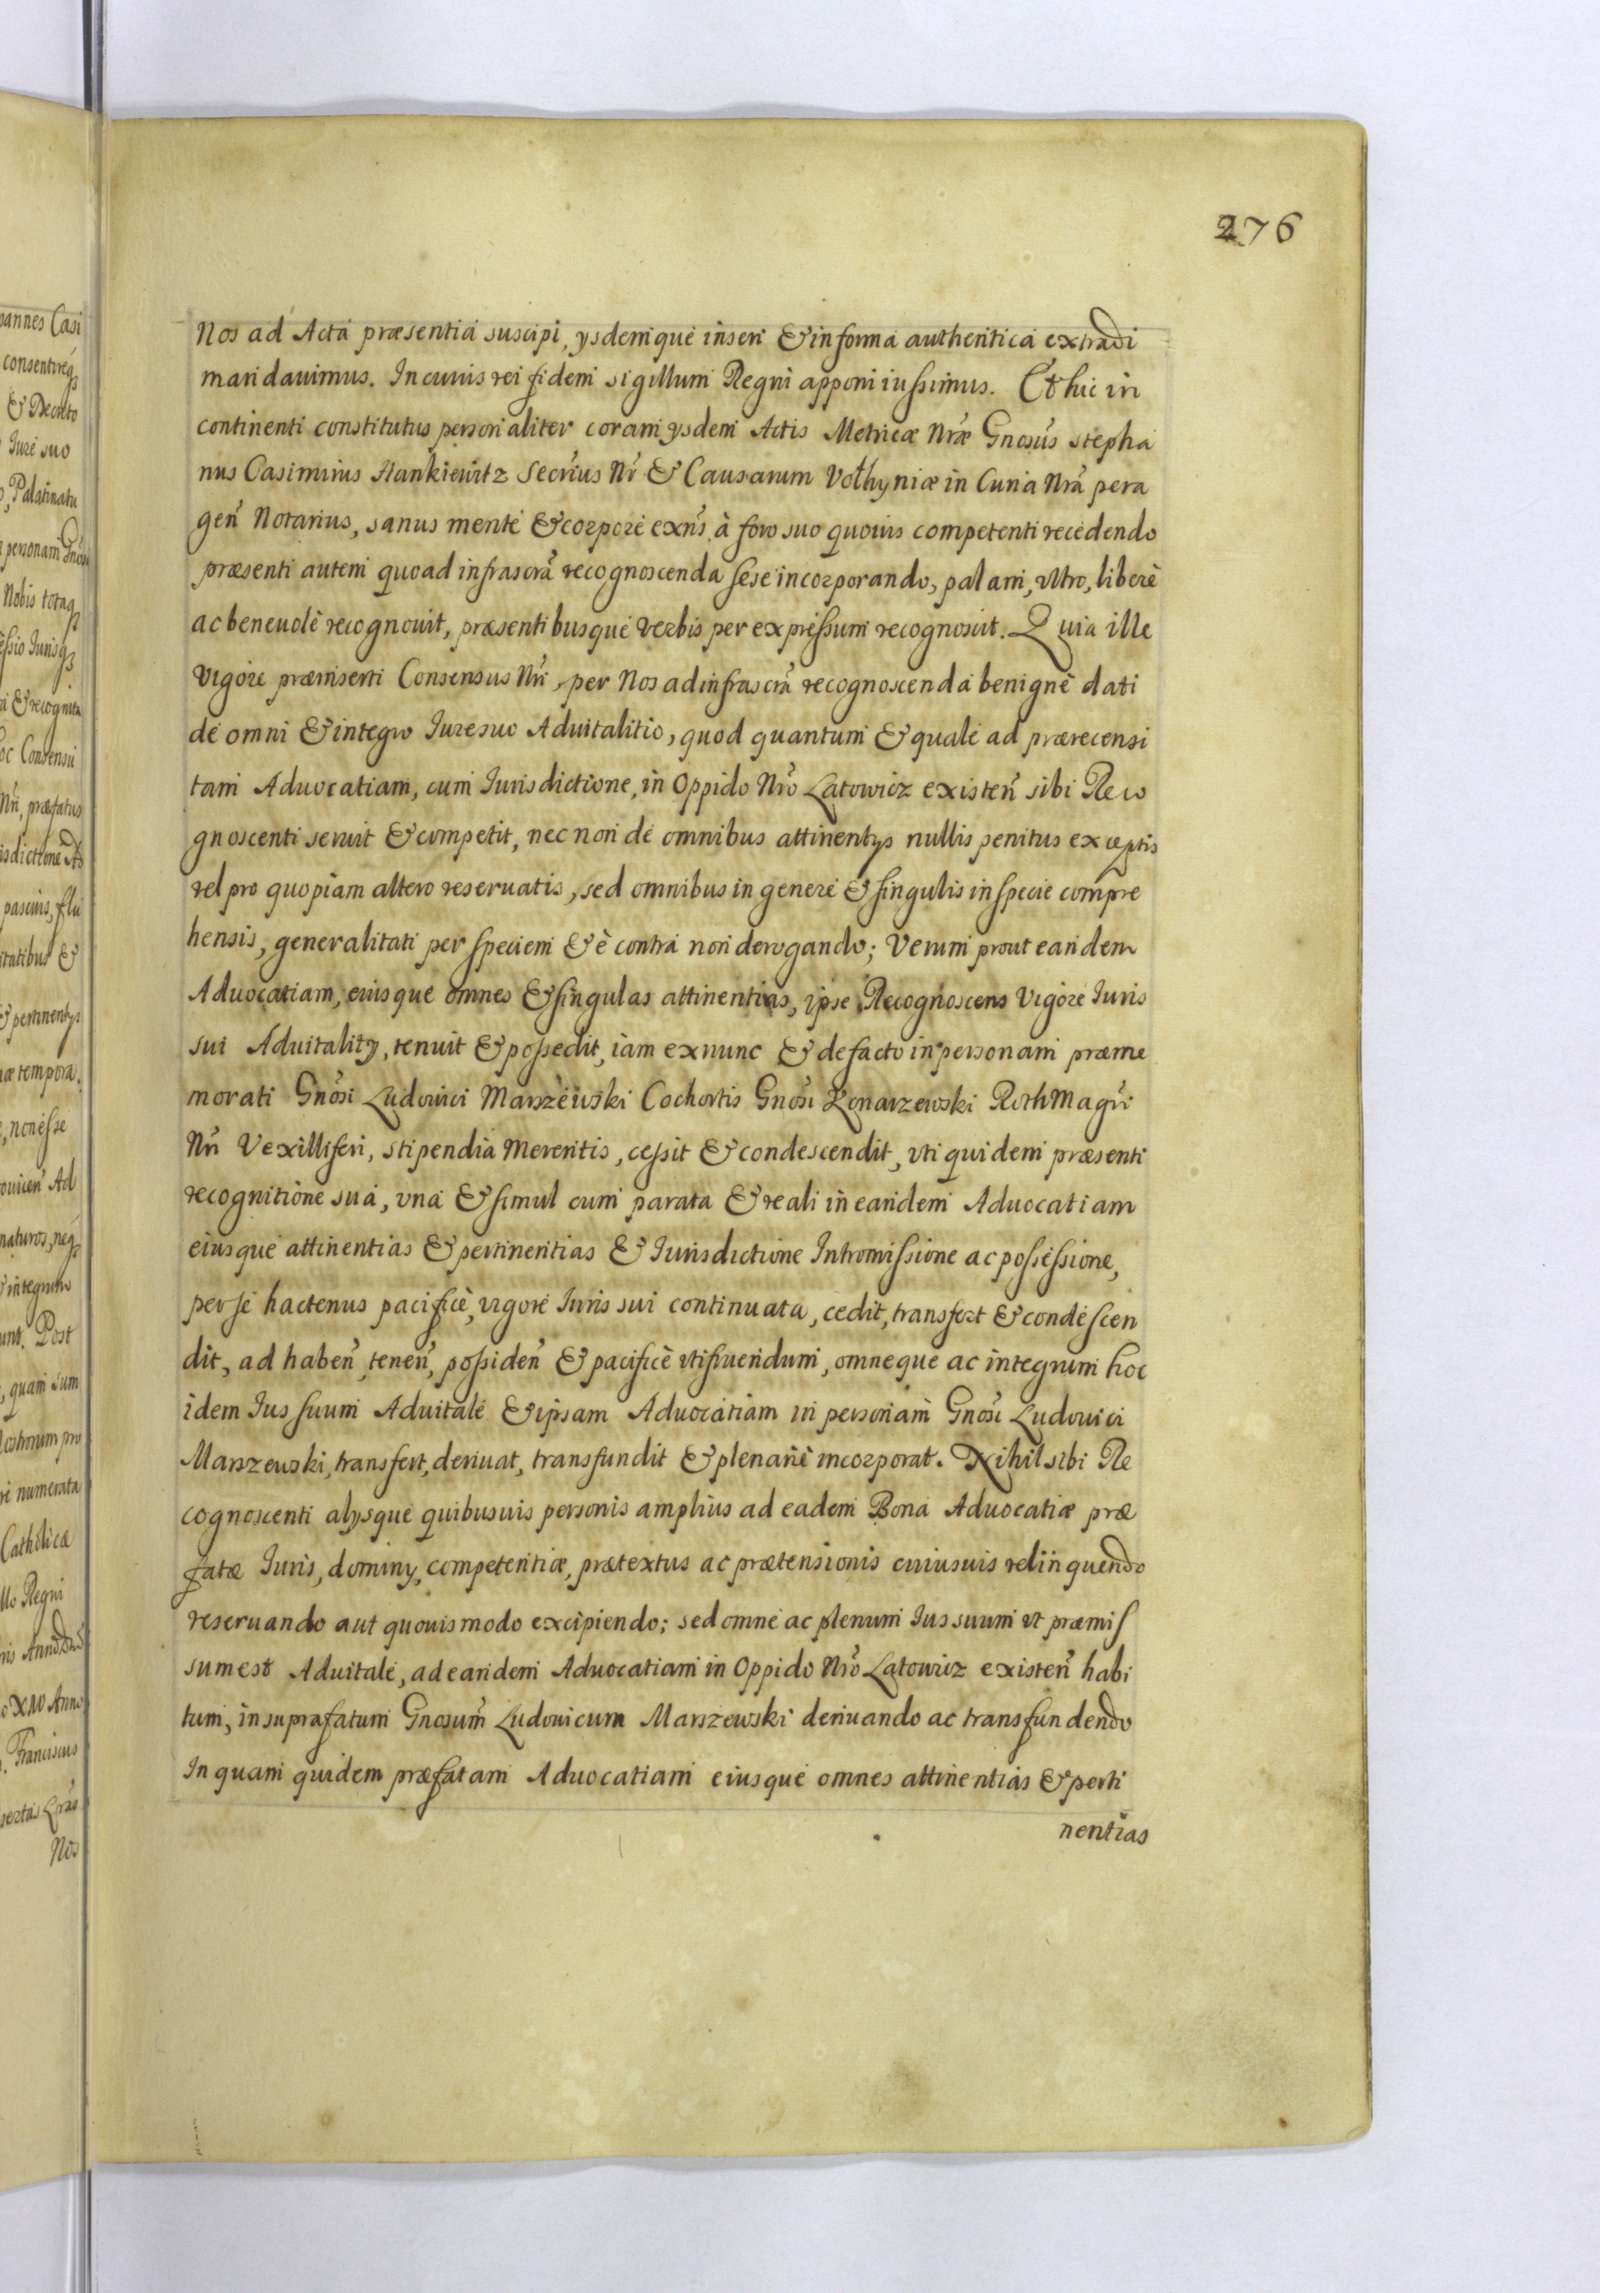 276
Nos ad Acta præsentia suscipi, ysdemque inseri & in forma authentica extradi
mandauimus. In cuius rei fidem sigillum Regni apponi iussimus. Et hic in
continenti constitutus personaliter coram ysdem Actis Metricæ Nr̃æ Gnosus Stepha
nus Casimirus Hankiewitz Secrius Nr̃ & Causarum Volhyniæ in Curia Nrã pera
gen̄ Notarius, sanus mente & corpore exñs à foro suo quouis competenti recedendo
præsenti autem quoad infrascrã recognoscenda sese incorporando, palam, vltro, liberè
ac beneuolè recognouit, præsentibusque verbis per expressum recognoscit. Quia ille
vigore præinserti Consensus Nr̃i, per Nos ad infrascrã recognoscenda benignè dati
de omni & integro Iure suo Aduitalitio, quod quantum & quale ad præ recensi
tam Aduocatiam, cum Iurisdictione, in Oppido Nr̃o Latowicz existen̄ sibi Reco
gnoscenti seruit & competit, nec non de omnibus attinentys nullis penitus exceptis
vel pro quopiam altero reseruatis, sed omnibus in genere & singulis in specie compre
hensis, generalitati per speciem & è contra non derogando; Verum prout eandem
Aduocatiam, eiusque omnes & singulas attinentias, ipse Recognoscens Vigore Iuris
sui Aduitality, tenuit & possedit, iam ex nunc & de facto in personam præme
morati Gnosi Ludouici Marszewski Cochortis Gnosi Konarzewski Rothmagri
Nr̃i Vexilliferi, stipendia Merentis, cessit & condescendit, vti quidem præsenti
recognitione sua, vna & simul cum parata & reali in eandem Aduocatiam
eiusque attinentias & pertinentias & Iurisdictione Intromissione ac possessione,
per se hactenus pacificè, vigore Iuris sui continuata, cedit, transfert & condescen
dit, ad haben̄, tenen̄, possiden̄ & pacificè vtifruendum, omneque ac integrum hoc
idem Ius suum Aduitale & ipsam Aduocatiam in personam Gnosi Ludouici
Marszewski, transfert, deriuat, transfundit & plenariè incorporat. Nihil sibi Re
cognoscenti alysque quibusuis personis amplius ad eadem Bona Aduocatiæ præ
fatæ Iuris, dominy, competentiæ, prætextus ac prætensionis cuiusuis relinquendo
reseruando aut quouismodo excipiendo; sed omne ac plenum Ius suum vt præmis
sum est Aduitale, ad eandem Aduocatiam in Oppido Nr̃o Latowicz existen̄ habi
tum, in suprafatum Gnosum Ludouicum Marszewski deriuando ac transfundendo
In quam quidem præfatam Aduocatiam eiusque omnes attinentias & perti
nentias